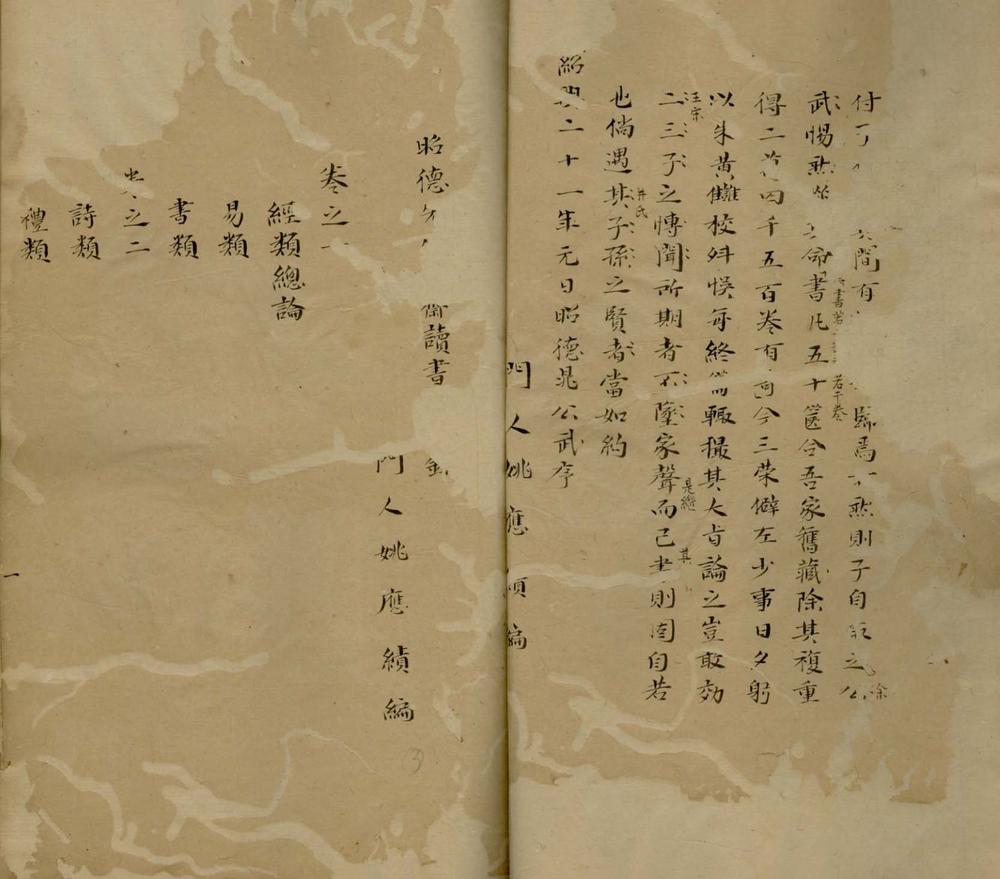 付 間有 歸焉 然則子自取之公
武惕然 命書凡五十篋合吾家舊藏除其複重
得二 四千五百卷有 今三榮僻左少事日夕躬
以朱黃讎校舛悞每終 輒撮其大旨論之豈敢効
二三子之博聞所期者不墜家聲而已 則固自若
也倘遇其子孫之賢者當如約
紹興二十一年元日昭德晁公武序
書若
若干卷
除
汪宗
井氏
是繼
其
門人姚應 編
昭德 讀書
門人姚應績編
卷之一
經類總論
易類
書類
卷之二
詩類
禮類
一